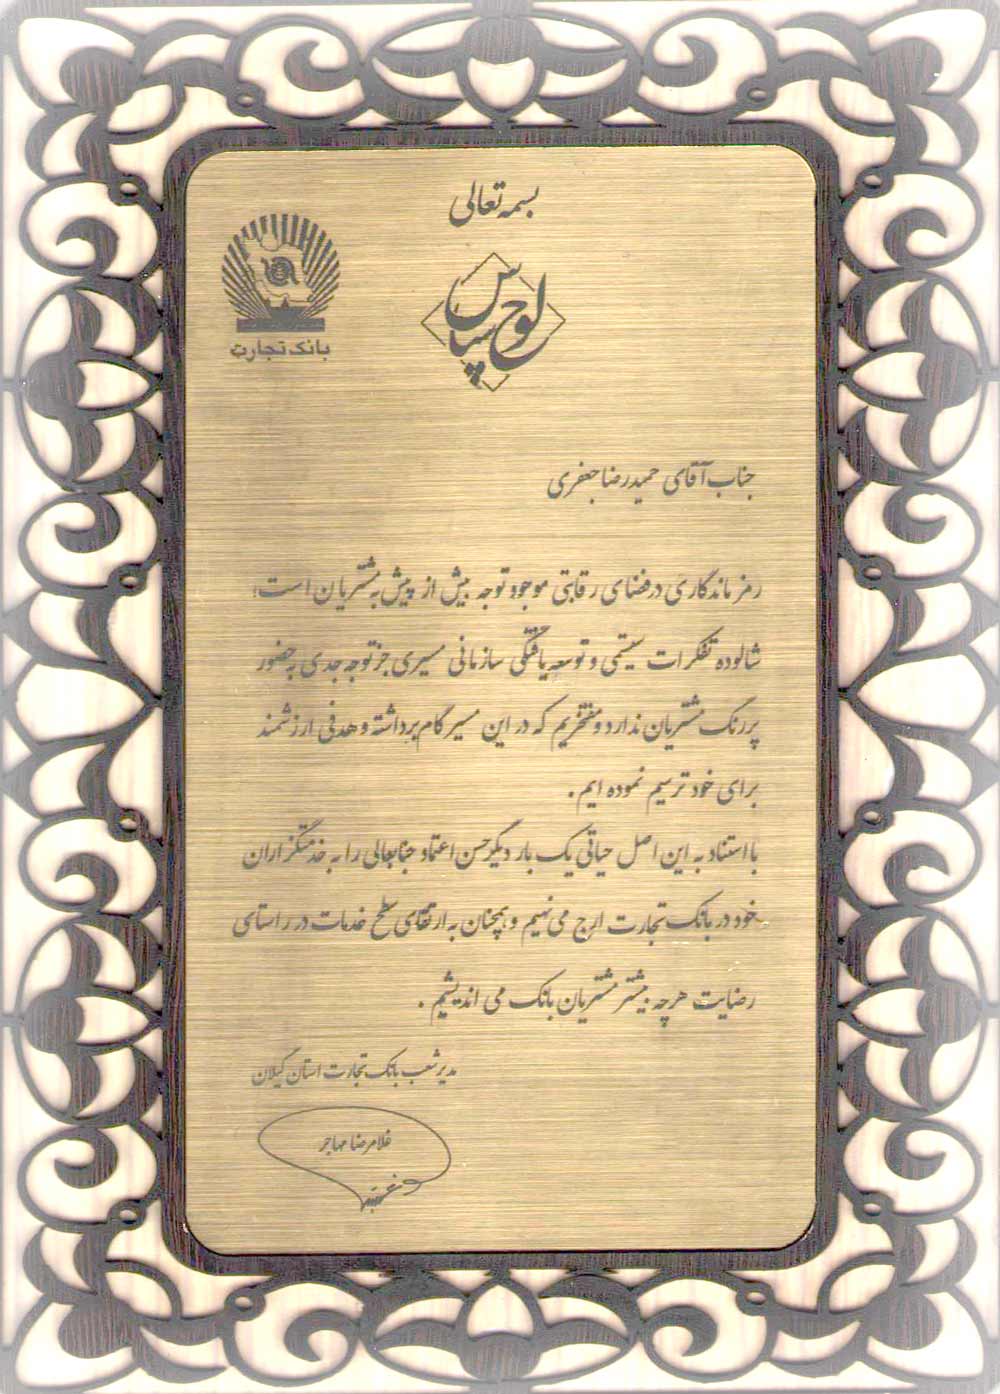 بسمه تعالی
لوح سپاس
بانک تجارت
جناب آقای حمیدرضا جعفری
رمز ماندگاری در فضای رقابتی موجود توجه بیش از پیش به مشتریان است؛
شالوده تفکرات سیستمی و توسعه یافتگی سازمانی مسیری جز توجه جدی به حضور
پررنگ مشتریان ندارد و مفتخریم که در این مسیر گام برداشته و هدفی ارزشمند
برای خود ترسیم نموده ایم .
با استناد به این اصل حیاتی یک بار دیگر حسن اعتماد جنابعالی را به خدمتگزاران
خود در بانک تجارت ارج می نهیم و همچنان به ارتقای سطح خدمات در راستای
رضایت هرچه بیشتر مشتریان بانک می اندیشیم .
مدیر شعب بانک تجارت استان گیلان
غلامرضا مهاجر